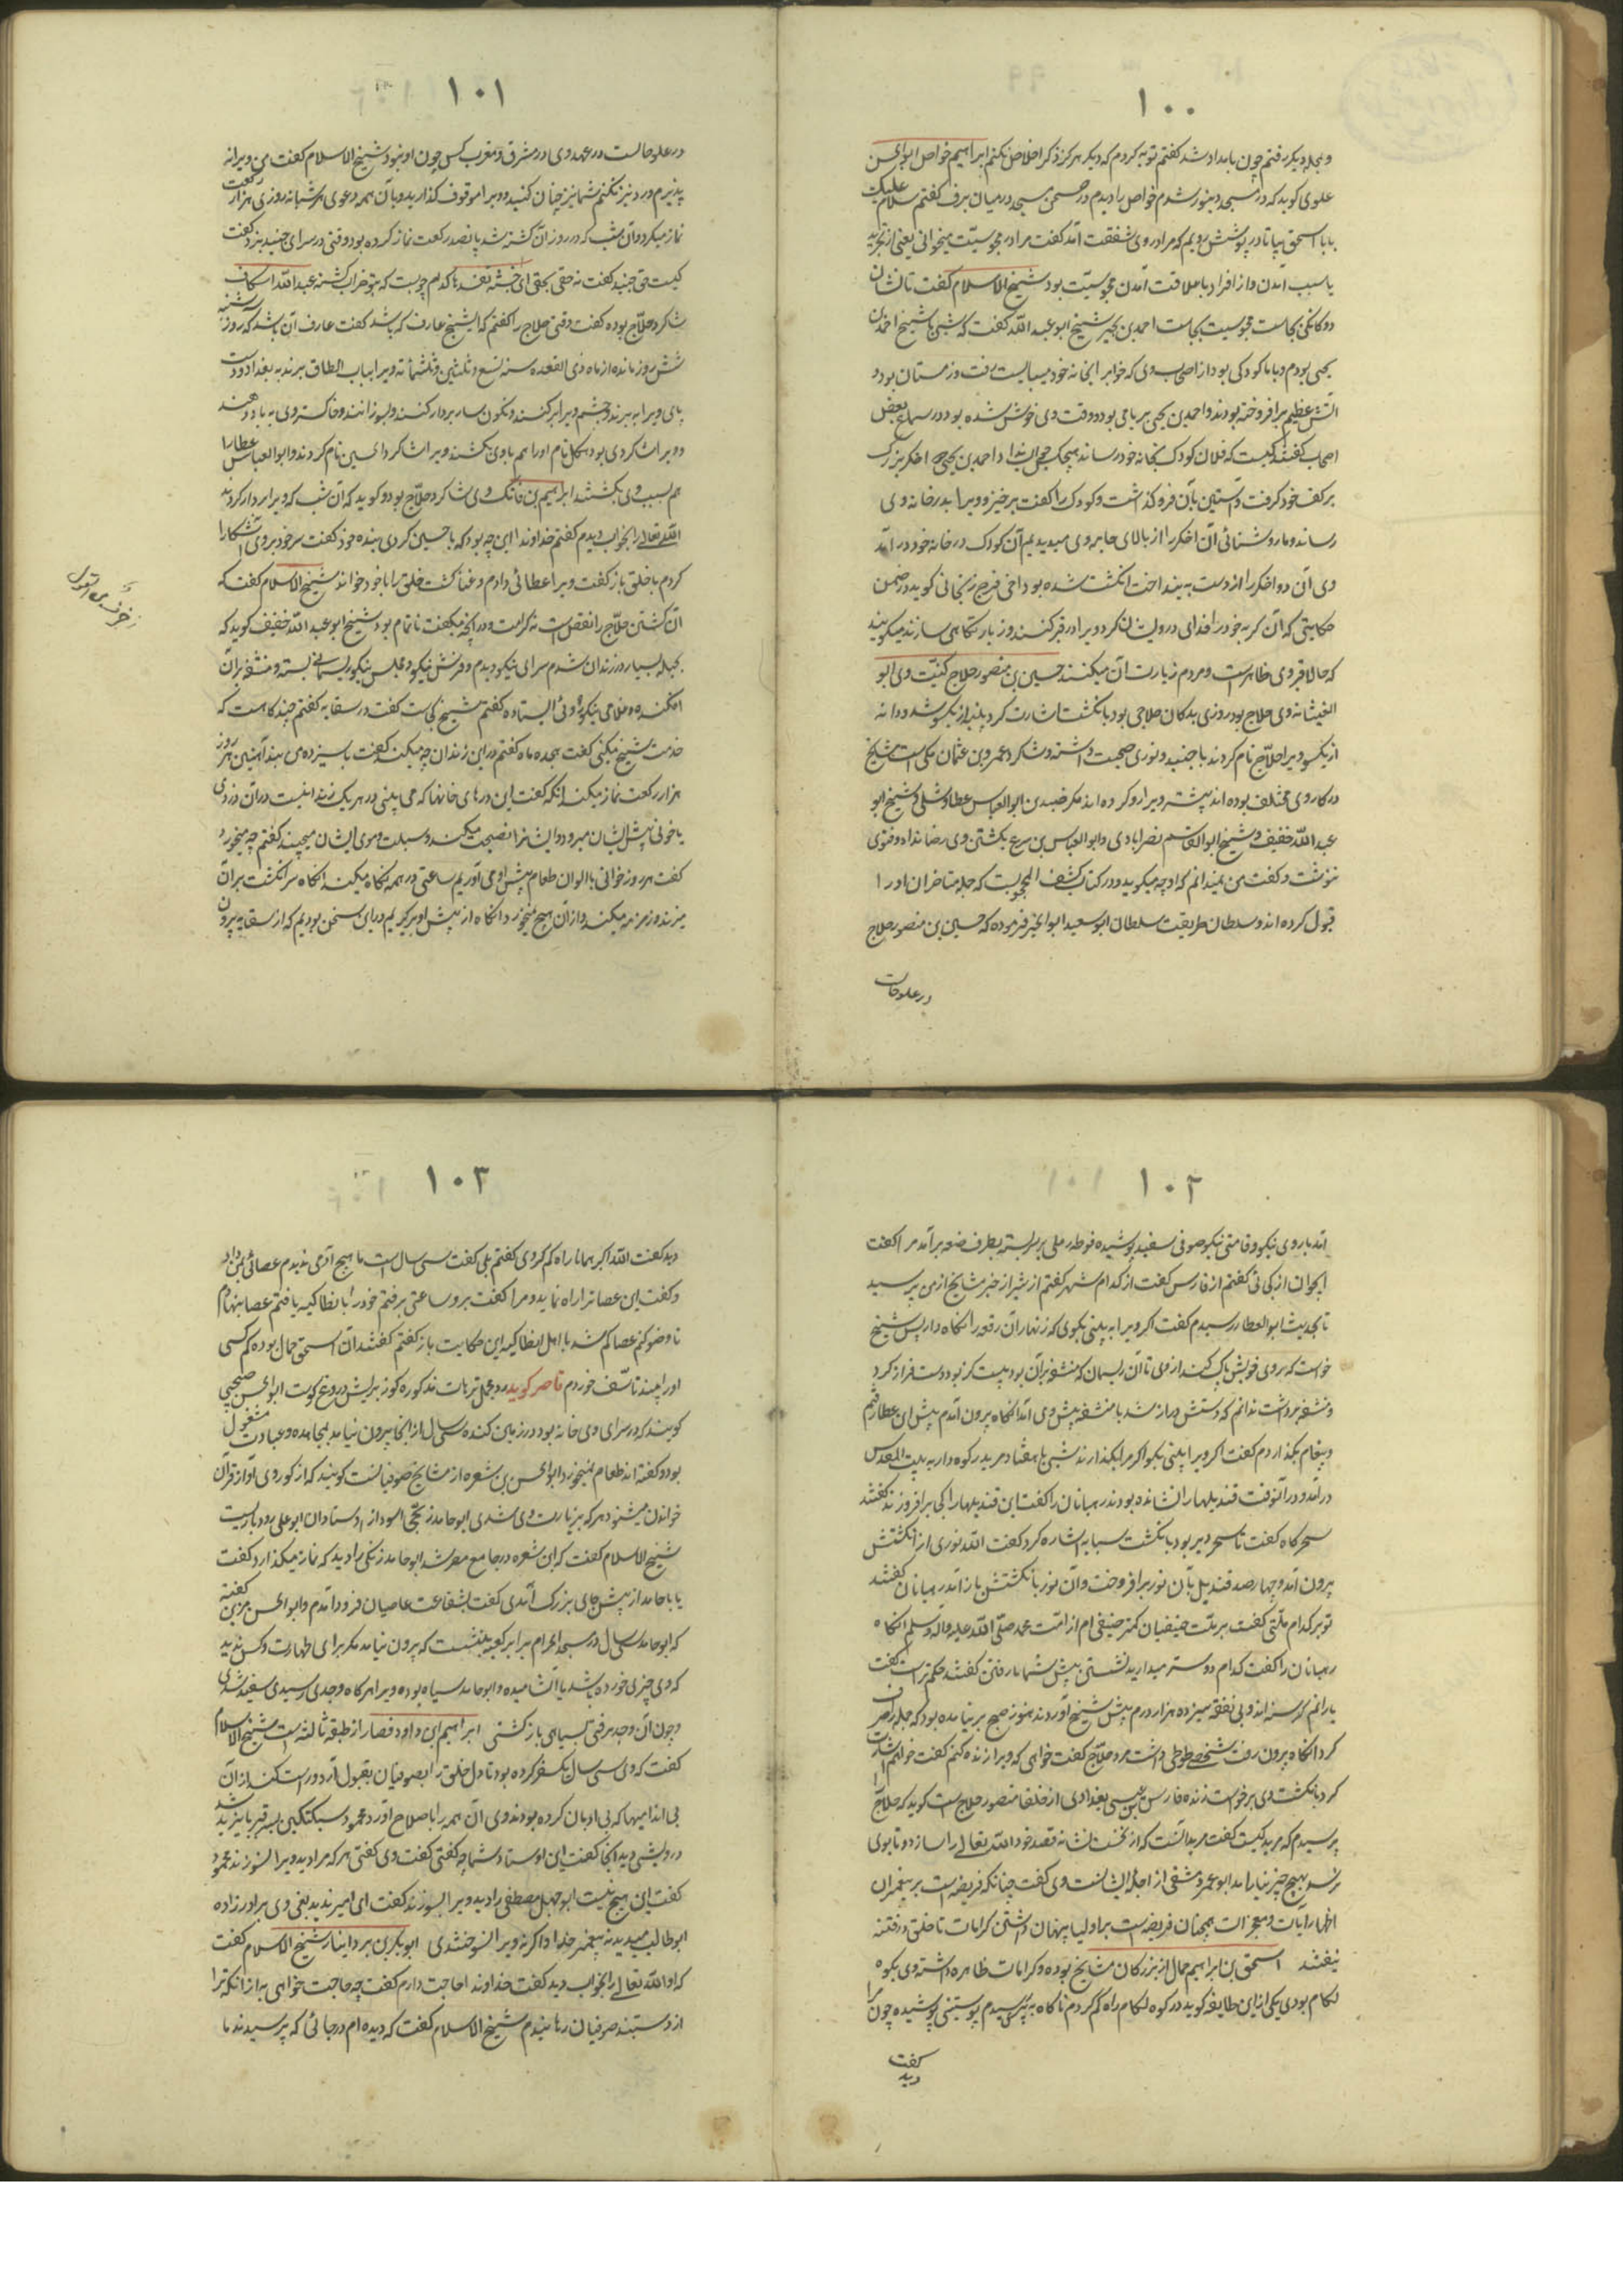 ١٠٠
و بجای دیگر رفتم چون بامداد شد گفتم توبه کردم که دیگر هرگز ذکر اخلاص نکنم ابراهیم خواص ابوالحسن
علوی گوید که در مسجد دینور شدم خواص را دیدم در صحن مسجد در میان برف گفتم سلام علیک
یا با اسحق بیا تا در پوشش رویم که مرا در وی شفقت آمد گفت مرا در مجوسیت میخوانی یعنی از تجرید
یا سبب آمدن و از افراد با علاقت آمدن مجوسیت بود شیخ الاسلام گفت تا نشان
دوگانگی بجاست مجوسیت بجاست احمد بن یحیی شیخ ابو عبد الله گفت که شبی با شیخ احمد بن
یحیی بودم و با ما کودکی بود از اصحاب وی که خواهر بخانه خود میبایست رفت و زمستان بود و
آتش عظیم برافروخته بودند و احمد بن یحیی بر پای بود و وقت وی خوش شده بود در سماع بعضی
اصحاب گفتند کیست که فلان کودک بخانه خود رساند هیچکس جواب نداد احمد بن یحیی دو اخگر بزرگ
بر کف خود گرفت و آستین بآن فرو گذاشت و کودک را گفت برخیز و ویرا بدر خانه وی
رساند و ما روشنائی آن اخگر را از بالای جامه وی میدیدیم آن کودک در خانه خود در آمد
وی آن دو اخگر را از دست بینداخت انگشت شده بود اخی فرج زنجانی گوید در ضمن
حکایتی که آن گربه خود را فدای درویشان کرد ویرا در قبر کنند و زیارتگاهی سازند میگویند
که حالا قبر وی ظاهر است و مردم زیارت آن میکنند حسین بن منصور حلاج کنیت وی ابو
المغیث نه وی حلاج بود روزی بدکان حلاجی بود بانگشت اشارت کرد پنبه از یکسو شد و دانه
از یکسو ویرا حلاج نام کردند با جنید و نوری صحبت داشته و شاگرد عمرو بن عثمان مکی است مشایخ
در کار وی مختلف بوده اند بیشتر ویرا رد کرده اند مگر چندین ابوالعباس عطا و شبلی و شیخ ابو
عبد الله خفیف و شیخ ابوالقاسم نصرابادی و ابوالعباس بن سریج بکشتن وی رضا نداد و فتوی
ننوشت و گفت من نمیدانم که او چه میگوید و در کتاب کشف المحجوب است که جمله متاخران او را
قبول کرده اند و سلطان طریقت سلطان ابو سعید ابو الخیر فرموده که حسین بن منصور حلاج
در علو حالت
١٠١
در علو حالست در عهد وی در مشرق و مغرب کس چون او نبود شیخ الاسلام گفت من ویرا نه
پذیرم و رد نیز نکنم شما نیز چنان کنید و ویرا موقوف گذارید و با آن همه دعوی هر شبانه روزی هزار رکعت
نماز میکرد و آن شب که در روز آن کشته شد پانصد رکعت نماز کرده بود وقتی در سرای جنید بزد گفت
کیست حق جنید گفت نه حقی بحقی ای خشبة تفسدها کدام چوبست که بتو خراب کنند عبد الله اسکاف
شاگرد حلاج بوده گفت وقتی حلاج را گفتم که ای شیخ عارف که باشد گفت عارف آن باشد که روز سه شنبه
شش روز مانده از ماه ذی القعده سنه تسع و ثلثین و ثلثمائه ویرا بباب الطاق برند به بغداد و دست
پای ویرا ببرند و چشم ویرا بر کنند و نگون سار بردار کنند و بسوزانند و خاکستر وی بباد دهند
و ویرا شاگردی بود هیکل نام او را هم باوی بکشتند ویرا شاگرد الحسین نام کردند و ابو العباس عطا را
هم بسبب وی بکشتند ابراهیم بن فاتک وی شاگرد حلاج بود و گوید که آن شب که ویرا بردار کردند
الله تعالی را بخواب دیدم گفتم خداوندا این چه بود که با حسین کردی بنده خود گفت سر خود بر وی آشکارا
کردم با خلق باز گفت ویرا عطائی دادم رعنا گشت خلق را با خود خواند شیخ الاسلام گفت که
آن کشتن حلاج را نقص است نه کرامت و در آنچه میگفت ناتمام بود شیخ ابو عبد الله خفیف گوید که
بحیله بسیار در زندان شدم سرای نیکو دیدم و فرشی نیکو و مجلسی نیکو ریسمانی بسته و منشفه بران
افکنده و غلامی نیکو روئی ایستاده گفتم شیخ کجاست گفت در سقایه گفتم چند گاهست که
خدمت شیخ میکنی گفت هجده ماه گفتم در این زندان چه میکند گفت با سیزده من بند آهنین هر روز
هزار رکعت نماز میکند انکه گفت این درهای خانها که می بینی در هر یک زندانیست در آن دزدی
یا خونی پیش ایشان میرود و ایشانرا نصیحت میکند و سبلت و موی ایشان میچیند گفتم چه میخورد
گفت هر روز خوانی با الوان طعام پیش او می آوریم ساعتی در همه نگاه میکند آنگاه سر انگشت بر آن
میزند و زمزمه میکند و از آن هیچ نمیخورد آنگاه از پیش او برگیریم در این سخن بودیم که از سقایه بیرون
١٠٢
آمد با روی نیکو و قامتی نیکو صوفی سفید پوشیده فوطه رملی بر سر بسته بطرف صفه بر آمد مرا گفت
ای جوان از کجائی گفتم از فارس گفت از کدام شهر گفتم از شیراز خبر مشایخ از من پرسید
تا بحدیث ابو العطا رسیدم گفت اگر ویرا به بینی بگوی که زنهار آن رقعه را نگاه دار پس شیخ
خواست که روی خویش پاک کند از وی تا آن ریسمان که منشفه بر آن بود بیست گز بود دست فراز کرد
و منشفه برداشت ندانم که دستش دراز شد یا منشفه پیش وی آمد آنگاه بیرون آمدم پیش ابن عطا رفتم
و پیغام بگذاردم گفت اگر ویرا بینی بگو اگر مرا بگذارند شبی با هفتاد مرید رکوه دار به بیت المقدس
در آمد و در آنوقت قندیلها را نشانده بودند رهبانان را گفت این قندیلها را کی برافروزند گفتند
سحرگاه گفت تا سحر دیر بود بانگشت سبابه اشاره کرد گفت الله نوری از انگشتش
بیرون آمد و چهارصد قندیل بآن نور برافروخت و آن نور بانگشتش باز آمد رهبانان گفتند
تو بر کدام ملتی گفت بر ملت حنیفیان کمتر حنیفی ام از امت محمد صلی الله علیه و آله و سلم آنگاه
رهبانان را گفت کدام دوستر میدارید نشستن پیش شما یا رفتن گفتند حکم تراست گفت
یارانم گرسنه اند و بی نفقه سیزده هزار درم پیش شیخ آوردند هنوز صبح بر نیامده بود که جمله را صرف
کرد آنگاه بیرون رفت شخصی طوطی داشت مرد حلاج گفت خواهی که ویرا زنده کنم گفت خواهم اشارت
کرد بانگشت وی برخواست زنده فارس بن عیسی بغدادی از خلفا منصور حلاج است گوید که حلاج را
پرسیدم که مرید کیست گفت مرید آنست که از نخست نشانه قصد خود الله تعالی را سازد و تا بوی
نرسد بهیچ چیز نیارامد ابو عمرو دمشقی از اجله ایشانست وی گفت چنانکه فریضه است بر پیغمبران
اظهار آیات و معجزات همچنان فریضه است بر اولیا پنهان داشتن کرامات تا خلق در فتنه
نیفتند اسحق بن ابراهیم حمال از بزرگان مشایخ بوده و کرامات ظاهره داشته وی بکوه
لکام بودی یکی از این طایفه گوید در کوه لکام راه گم کردم ناگاه به پیری رسیدم پوستینی پوشیده چون مرا
گفت
دید
١٠٣
دید گفت الله اکبر همانا راه گم کردی گفتم بلی گفت سی سال است تا هیچ آدمی ندیدم عصائی بمن داد
و گفت این عصا ترا راه نماید و مرا گفت برو ساعتی برفتم خود را بانطاکیه یافتم عصا بنهادم
تا وضو کنم عصا گم شد با اهل انطاکیه این حکایت باز گفتم گفتند آن اسحق حمال بوده کم کسی
او را بیند تاسف خوردم قاصر گوید مجمل ترهات مذکوره گوز برایش دروغ گوست ابو الحسن صبیحی
گویند که در سرای وی خانه بود در زمین کنده سی سال از آنجا بیرون نیامد بمجاهده و عبادت مشغول
بود و گفته اند طعام نمیخورد ابو الحسن بن شعره از مشایخ صوفیانست گویند که از گور وی آواز قرآن
خواندن میشنود هر که بزیارت وی شدی ابو حامد زنجی اسود از استادان ابو علی رودباریست
شیخ الاسلام گفت که ابن شعره در جامع مصر شد ابو حامد زنگی را دید که نماز میگذارد گفت
یا با حامد از پیش جای بزرگ آمدی گفت بشفاعت عاصیان فرود آمدم و ابو الحسن مزین گفته
که ابو حامد سی سال در مسجد الحرام برابر کعبه بنشست که بیرون نیامد مگر برای طهارت و کس ندید
که وی چیزی خورده باشد یا آشامیده و ابو حامد سیاه بوده ویرا هر گاه وجدی رسیدی سفید شدی
و چون آن وجد برفتی بسیاهی باز گشتی ابراهیم بن داود قصار از طبقه ثالثه است شیخ الاسلام
گفت که وی سی سال یک سفر کرده بود تا دل خلق را بصوفیان بقبول آرد و راست کند از آن
بی اندامیها که بی ادبان کرده بودند وی آن همه را باصلاح آورد محمود سبکتکین بسر قبر بایزید شد
درویشی دید آنجا گفت این استاد شما چه گفتی گفت وی گفتی هر که مرا دید ویرا نسوزند محمود
گفت این هیچ نیست ابو جهل مصطفی را دید ویرا بسوزند گفت ای امیر ندید یعنی وی برادر زاده
ابو طالب میدید نه پیغمبر خدا و اگر نه ویرا نسوختندی ابو بکر بن بردانیار شیخ الاسلام گفت
که او الله تعالی را بخواب دید گفت خداوندا حاجت دارم گفت چه حاجت خواهی به از آنکه ترا
از دست صوفیان رهانیدم شیخ الاسلام گفت که دیده ام در جائی که پرسیدند ما